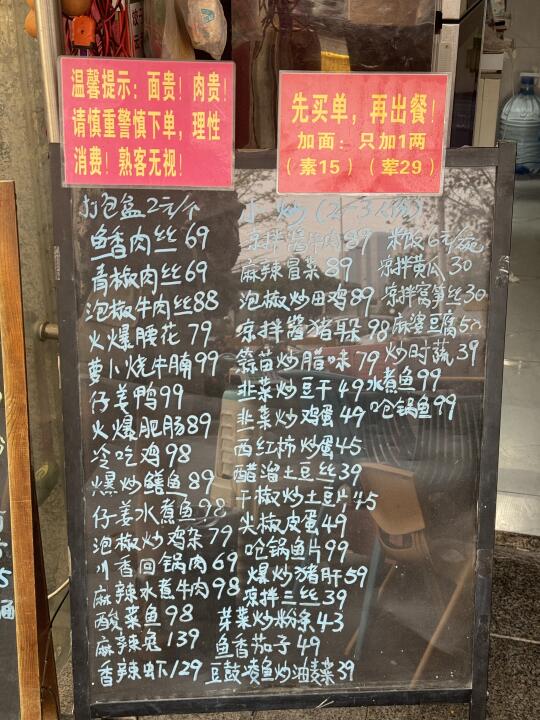 温馨提示：面贵！肉贵！
请慎重警慎下单，理性
消费！熟客无视！
先买单，再出餐！
加面：只加1两
（素15）（荤29）
打包盒2元/个
鱼香肉丝69
青椒肉丝69
泡椒牛肉丝88
火爆腰花79
萝卜烧牛腩99
仔姜鸭99
火爆肥肠89
冷吃鸡98
爆炒鳝鱼89
仔姜水煮鱼98
泡椒炒鸡杂79
川香回锅肉69
麻辣水煮牛肉98
酸菜鱼98
麻辣兔139
香辣虾129
小炒(2-3人份)
凉拌酱牛肉89
麻辣冒菜89
泡椒炒田鸡89
凉拌酱猪耳98
蒜苗炒腊味79
韭菜炒豆干49
韭菜炒鸡蛋49
西红柿炒蛋45
醋溜土豆丝39
干椒炒土豆片45
尖椒皮蛋49
呛锅鱼片99
爆炒猪肝59
凉拌三丝39
芽菜炒粉条43
鱼香茄子49
豆鼓凌鱼炒油麦菜39
米饭6元/碗
凉拌黄瓜30
凉拌窝笋丝30
麻婆豆腐50
炒时蔬39
水煮鱼99
呛锅鱼99